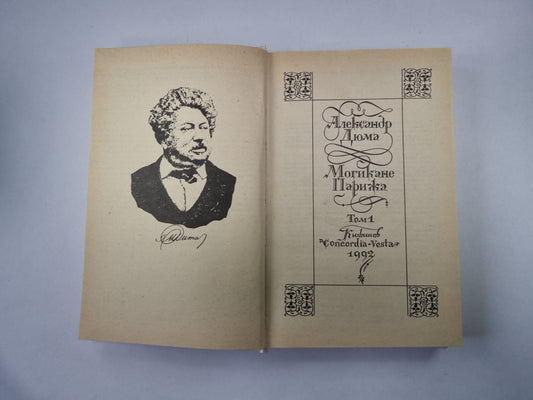 Александр
Дюма
Могикане
Парижа
Том 1
Кишинев
"Concordia-Vesta"
1992